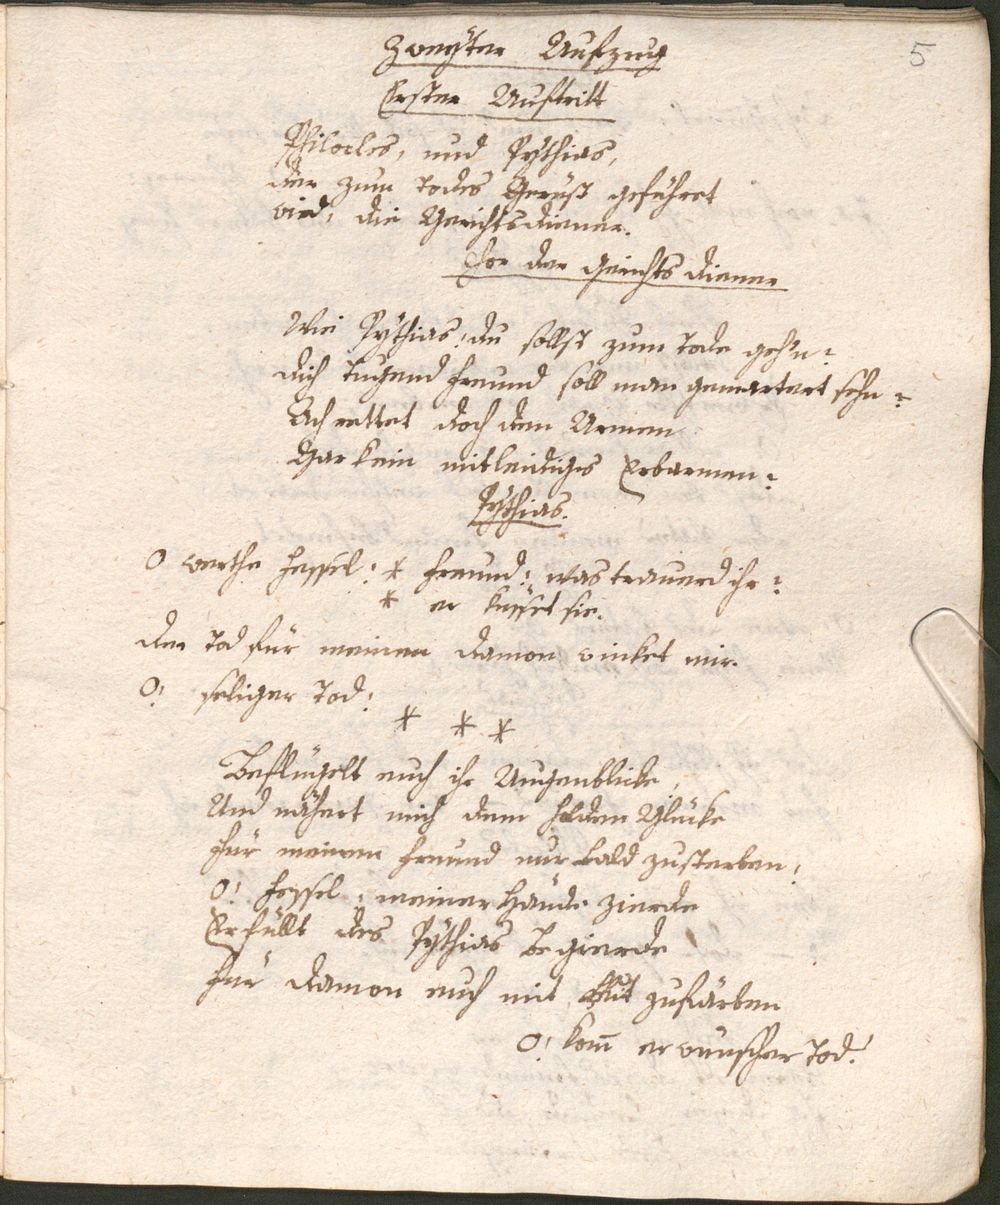 5
Zweyter Aufzug
Erster Auftritt
Philocles, und Pythias,
der zum Todes Gerüst geführet
wird, die Gerichtsdiener.
Chor der Gerichts diener
Wie Pythias! du sollst zum Tode geh'n?
dich Tugend freund soll man gemartert sehn?
Ach rettet doch den Armen
Gar kein mitleidiges Erbarmen?
Pythias.
O werthe Fessel! * Freund! was trauerd ihr?
* er küsset sie.
der Tod für meinen Damon winket mir.
O! seliger Tod!
* * *
Beflügelt euch ihr Augenblicke,
Und nähert mich dem holden Glücke
Für meinen Freund nur bald zusterben,
O! Fessel, meiner Hände Zierde
Erfüllt des Pythias Begierde
Für Damon euch mit Blut zufärben
O! kom̅ erwünschter Tod!